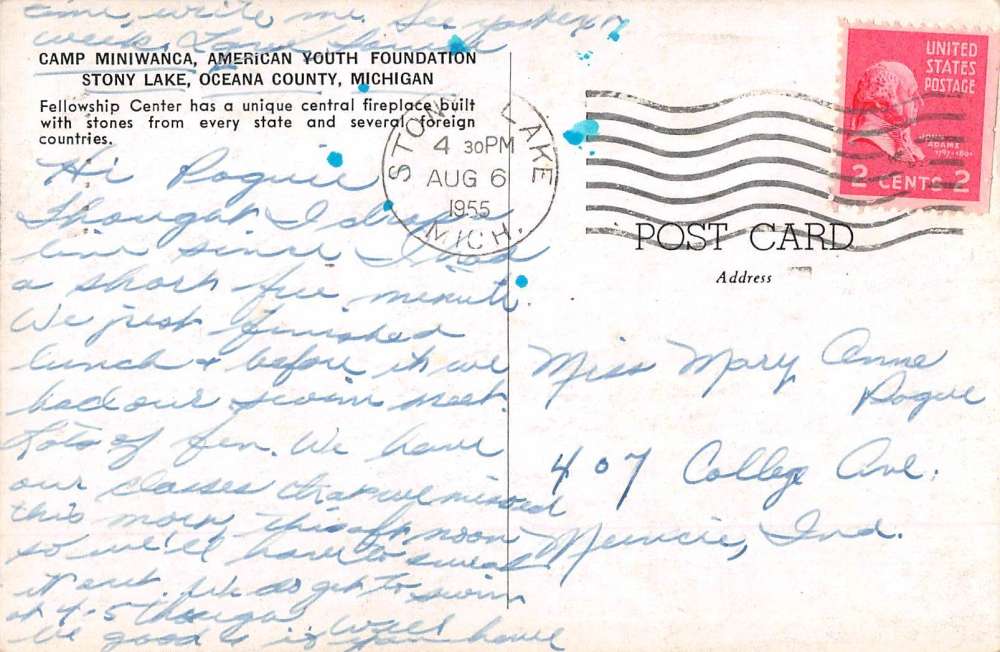 CAMP MINIWANCA, AMERICAN YOUTH FOUNDATION
STONY LAKE, OCEANA COUNTY, MICHIGAN
Fellowship Center has a unique central fireplace built
with stones from every state and several foreign
countries.
STONY LAKE
4 30PM
AUG 6
1955
MICH.
UNITED
STATES
POSTAGE
JOHN
ADAMS
2 CENTS 2
POST CARD
Address
Hi Poguie
Thought I drop a
line since I had
a short free minute.
We just finished
lunch & before it we
had our swim meet.
Lots of fun. We have
our classes that we missed
this morn, this afternoon
so we'll have to sweat
it out. We do get to swim
at 4-5 though. Well
be good & if you have
time, write me. See you
week. Love
Miss Mary Anne
Pogue
407 College Ave.
Muncie, Ind.